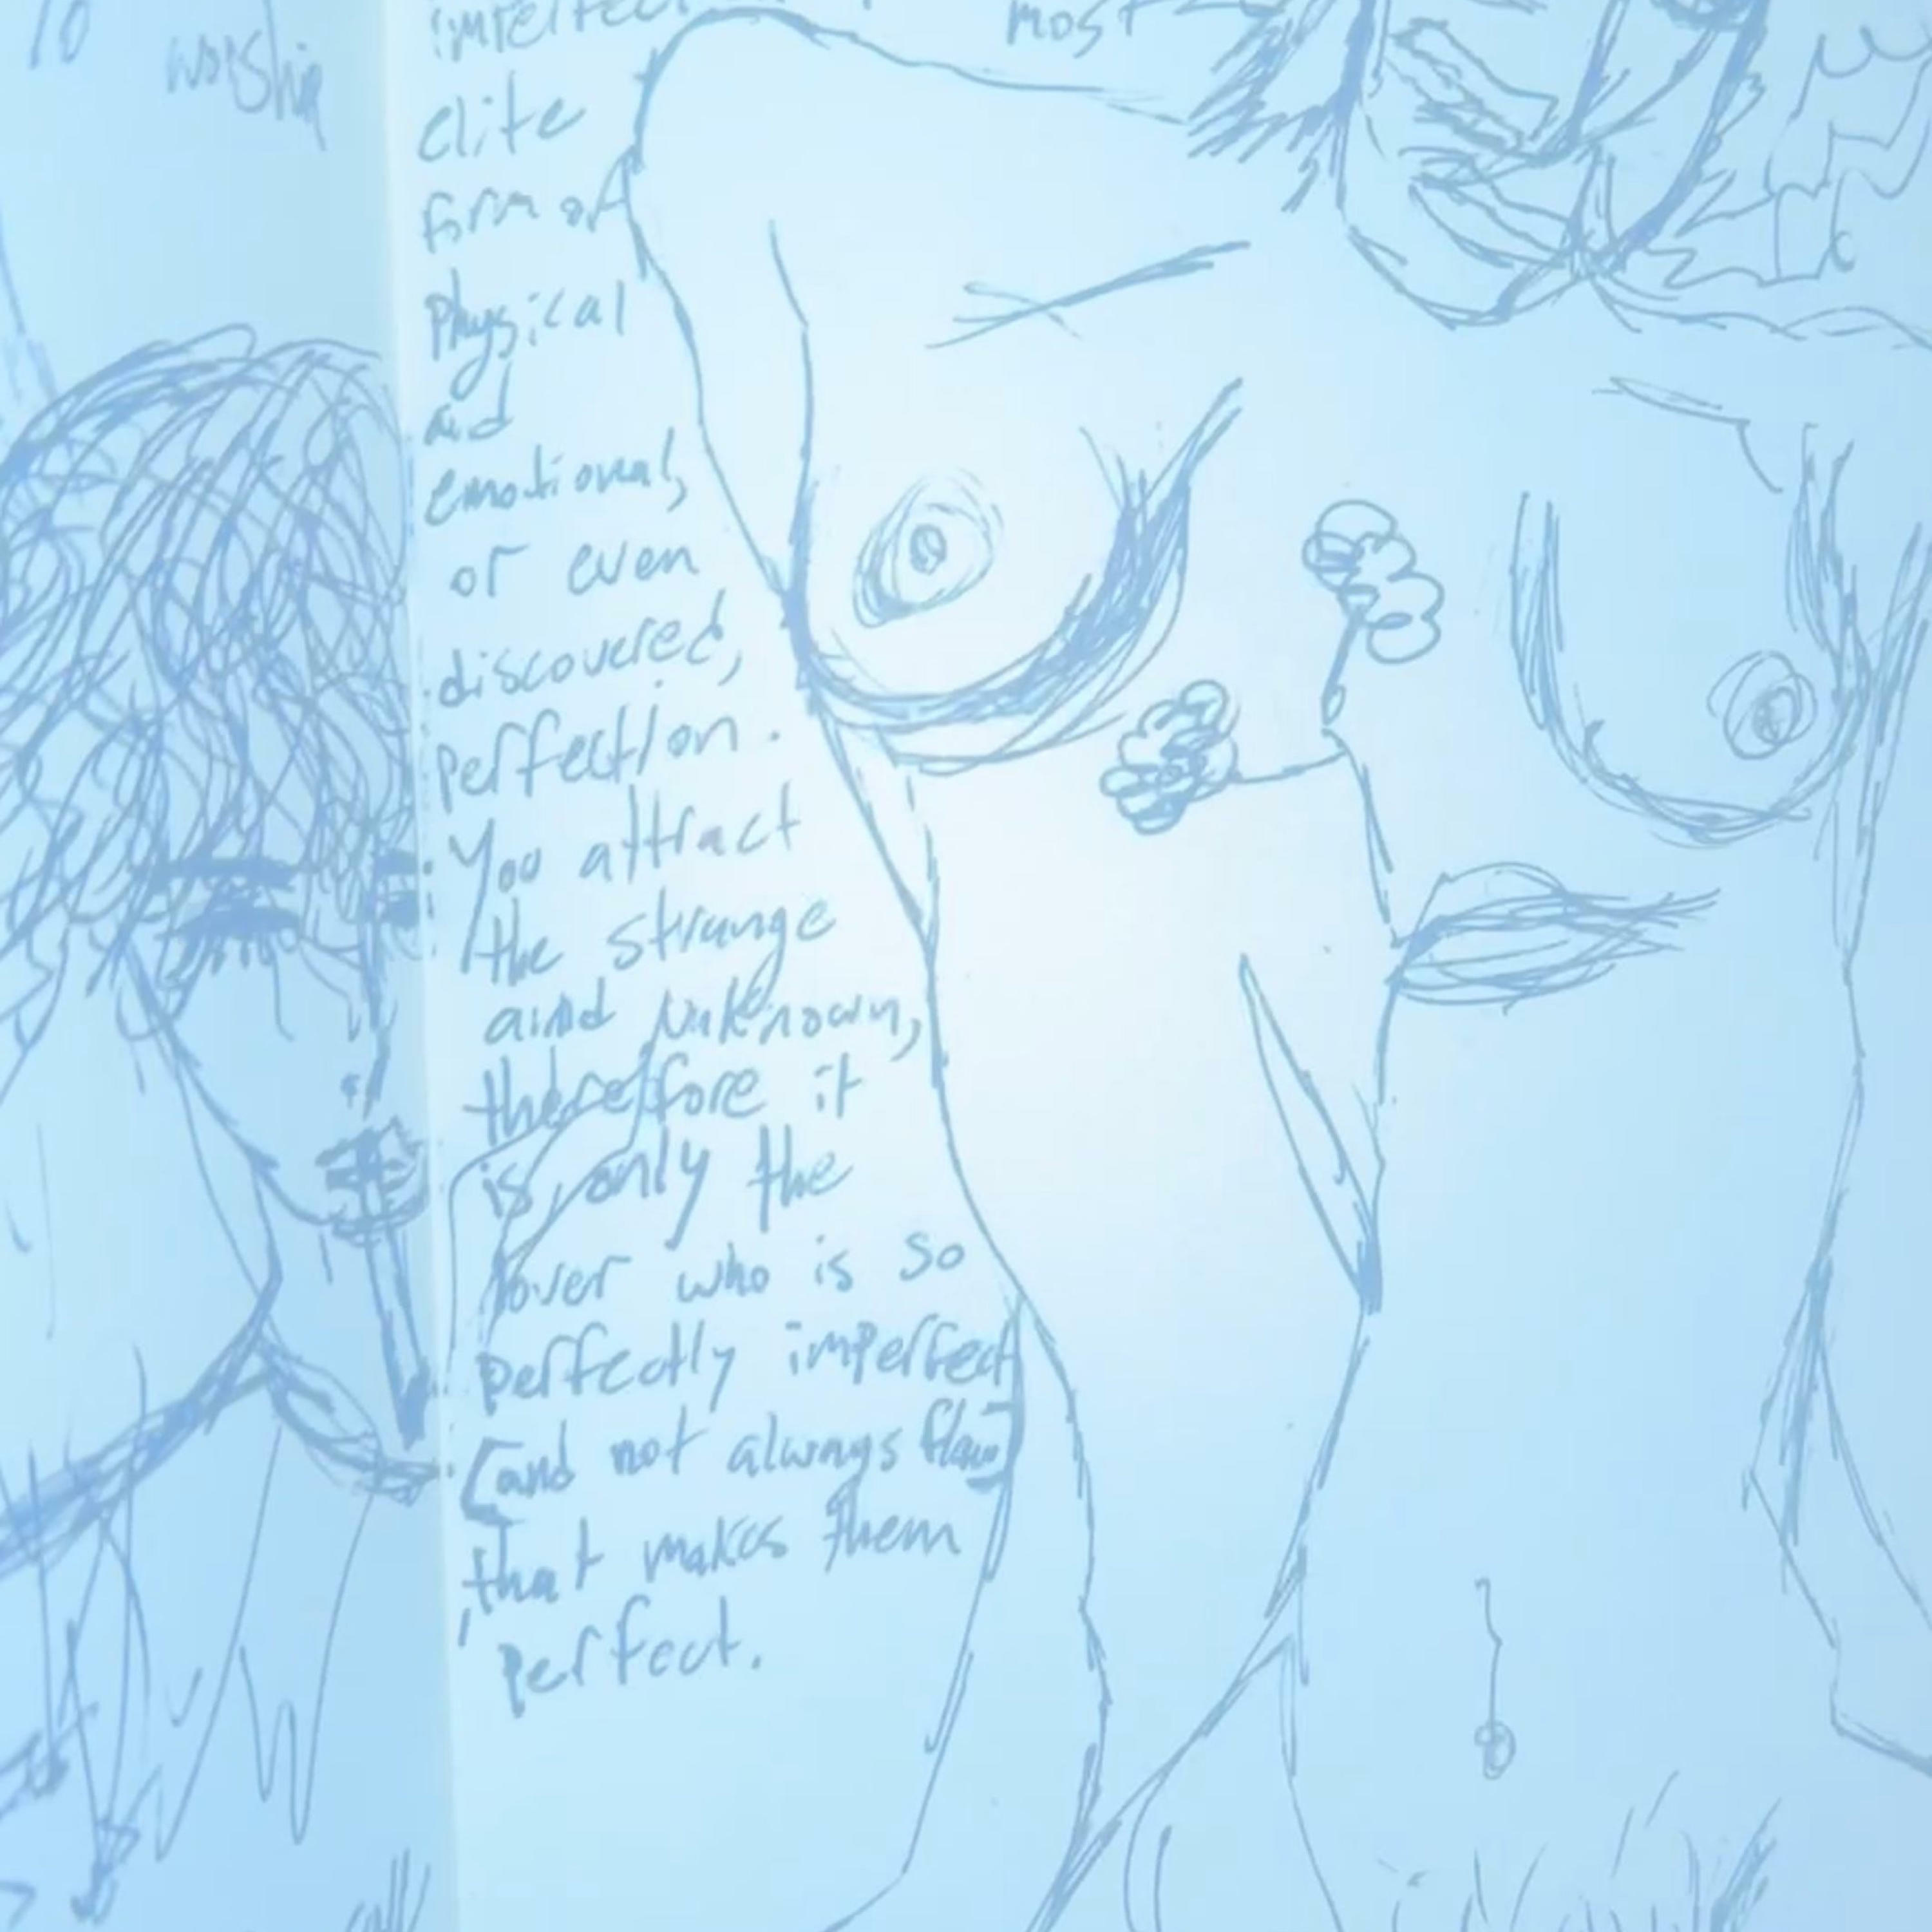 to
worship
imperfect
most
elite
form of
physical
and
emotional,
or even
discovered,
perfection.
You attract
the strange
and unknown,
therefore it
is only the
lover who is so
perfectly imperfect
(and not always flaw)
that makes them
perfect.